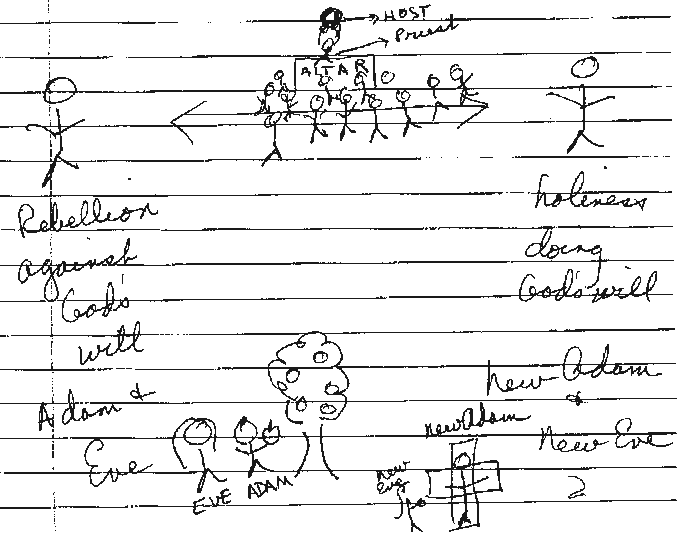 HOST
Priest
ALTAR
Rebellion
against
God's
will
holiness
doing
God's will
Adam &
Eve
EVE ADAM
new Adam
&
New Eve
new Adam
new
Eve
2